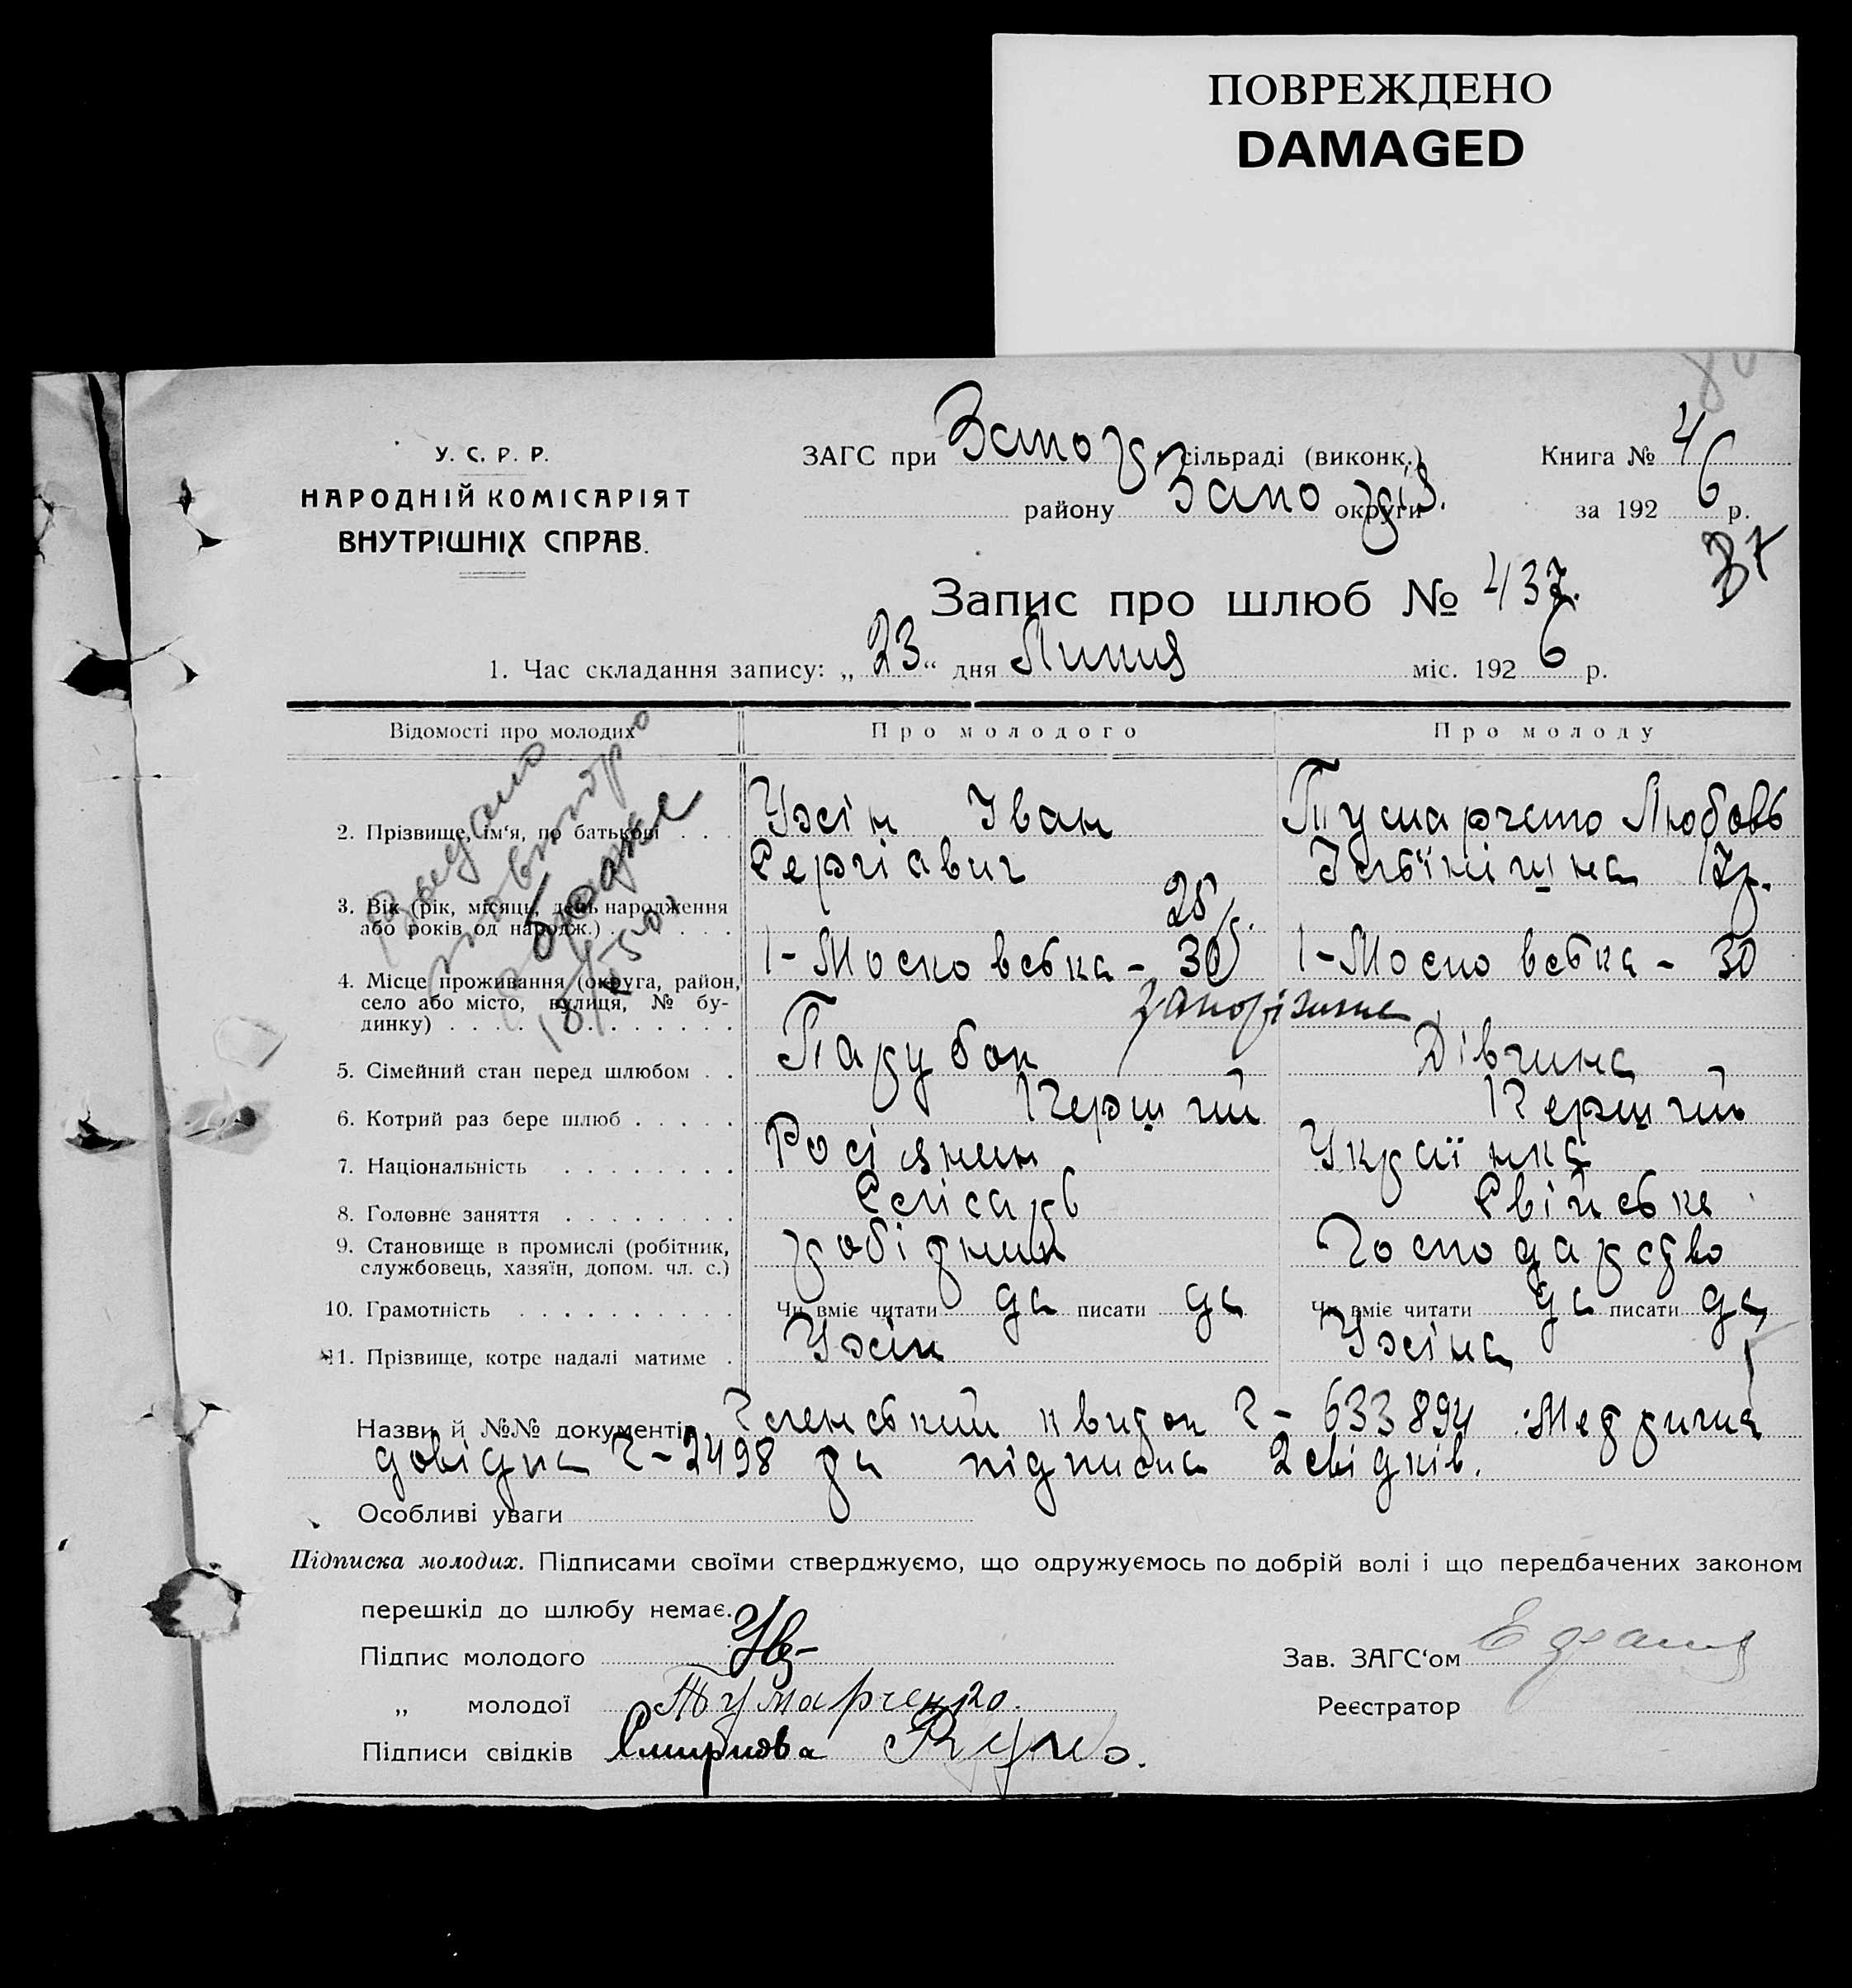 ПОВРЕЖДЕНО
DAMAGED
У. С. Р. Р.
НАРОДНІЙ КОМІСАРІЯТ
ВНУТРІШНІХ СПРАВ.
ЗАГС при Запор. сільраді (виконк.)
району Запо різ. округи
Книга № 4
за 1926 р.
37
Запис про шлюб № 437.
1. Час складання запису: „23“ дня Липня міс. 1926 р.
Відомості про молодих Про молодого Про молоду
2. Прізвище, ім‘я, по батькові . . . Ужін Іван Тумарченко Любовь
Сергіавич 17р.
3. Вік (рік, місяць, день народження 25р.
або років од народж.) . . . . . .
4. Місце проживання (округа, район, 1-Московська - 30 1-Московська - 30
село або місто, вулиця, № бу-
динку) . . . . . . . . . . . . Запоріжже
5. Сімейний стан перед шлюбом . . Парубок Дівчина
6. Котрий раз бере шлюб . . . . . Перший Перший
7. Національність . . . . . . . . Росіянин Українка
8. Головне заняття . . . . . . . . Слісарь Свійське
9. Становище в промислі (робітник, робітник Господарство
службовець, хазяїн, допом. чл. с.)
10. Грамотність . . . . . . . . . . Чи вміє читати да писати да Чи вміє читати да писати да
11. Прізвище, котре надалі матиме . Ужін Ужіна
Назви й №№ документів Членський квиток Ч- 633894 Метрична
довідка Ч-2498 та підписка 2 свідків.
Особливі уваги
Підписка молодих. Підписами своїми стверджуємо, що одружуємось по добрій волі і що передбачених законом
перешкід до шлюбу немає.
Підпис молодого
Зав. ЗАГС‘ом
„ молодої Тумарченко.
Реєстратор
Підписи свідків Смирнова